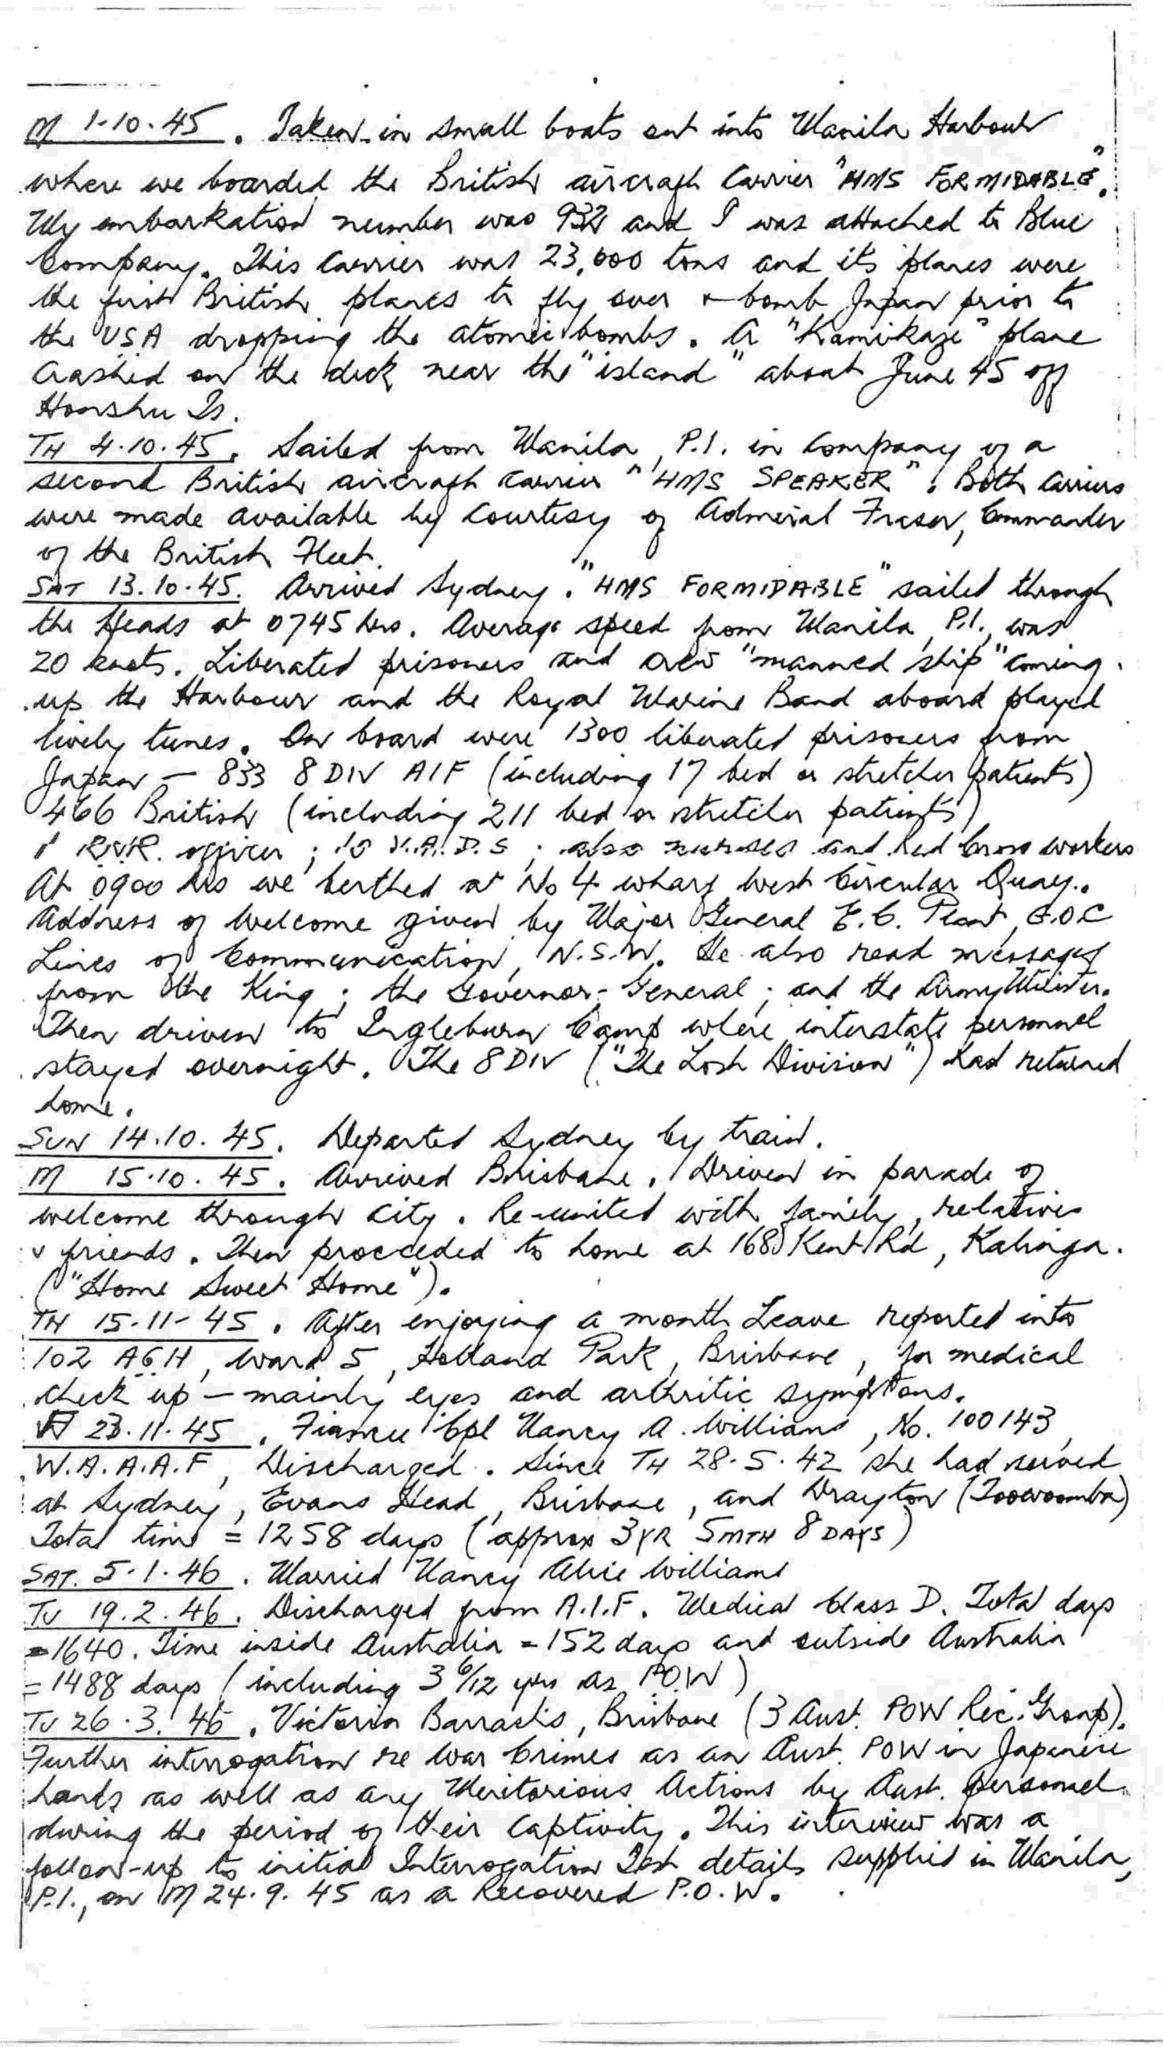 M 1.10.45. Taken in small boats out into Manila Harbour
where we boarded the British aircraft carrier "HMS FORMIDABLE".
My embarkation number was 932 and I was attached to Blue
Company. This carrier was 23,000 tons and its planes were
the first British planes to fly over & bomb Japan prior to
the USA dropping the atomic bombs. A "Kamikaze" plane
crashed on the deck near the "island" about June 45 off
Honshu Is.
TH 4.10.45. Sailed from Manila, P.I. in company of a
second British aircraft carrier "HMS SPEAKER". Both carriers
were made available by courtesy of Admiral Fraser, Commander
of the British Fleet.
SAT 13.10.45. Arrived Sydney. "HMS FORMIDABLE" sailed through
the Heads at 0745 hrs. Average speed from Manila, P.I., was
20 knots. Liberated prisoners and crew "manned ship" coming
up the Harbour and the Royal Marine Band aboard played
lively tunes. On board were 1300 liberated prisoners from
Japan - 833 8 DIV AIF (including 17 bed or stretcher patients)
466 British (including 211 bed or stretcher patients)
1 officer; 10 V.A.D.S; also nurses and Red Cross workers
At 0900 hrs we berthed at No 4 wharf West Circular Quay.
Address of Welcome given by Major General E.C. Plant, G.O.C
Lines of Communication, N.S.W. He also read messages
from the King; the Governor-General; and the Army Minister.
Then driven to Ingleburn Camp where interstate personnel
stayed overnight. The 8 DIV ("The Lost Division") had returned
home.
SUN 14.10.45. Departed Sydney by train.
M 15.10.45. Arrived Brisbane. Driven in parade of
welcome through city. Re-united with family, relatives
& friends. Then proceeded to home at 168 Kent Rd, Kalinga.
("Home Sweet Home").
TH 15-11-45. After enjoying a month Leave reported into
102 AGH, Ward 5, Holland Park, Brisbane, for medical
check up - mainly eyes and arthritic symptoms.
23.11.45. Fiancee Cpl Nancy A. Williams, No. 100143,
W.A.A.A.F, Discharged. Since TH 28.5.42 she had served
at Sydney, Evans Head, Brisbane, and Drayton (Toowoomba)
Total time = 1258 days (approx 3 YR 5 MTH 8 DAYS)
SAT. 5.1.46. Married Nancy Alice Williams
TU 19.2.46. Discharged from A.I.F. Medical Class D. Total days
= 1640. Time inside Australia = 152 days and outside Australia
= 1488 days (including 3 6/12 yrs as P.O.W)
TU 26.3.46. Victoria Barracks, Brisbane (3 Aust. POW Rec. Group).
Further interrogation re War Crimes as an Aust. POW in Japanese
hands as well as any Meritorious Actions by Aust. personnel
during the period of their Captivity. This interview was a
follow-up to initial Interrogation Test details supplied in Manila,
P.I., on M 24.9.45 as a Recovered P.O.W.